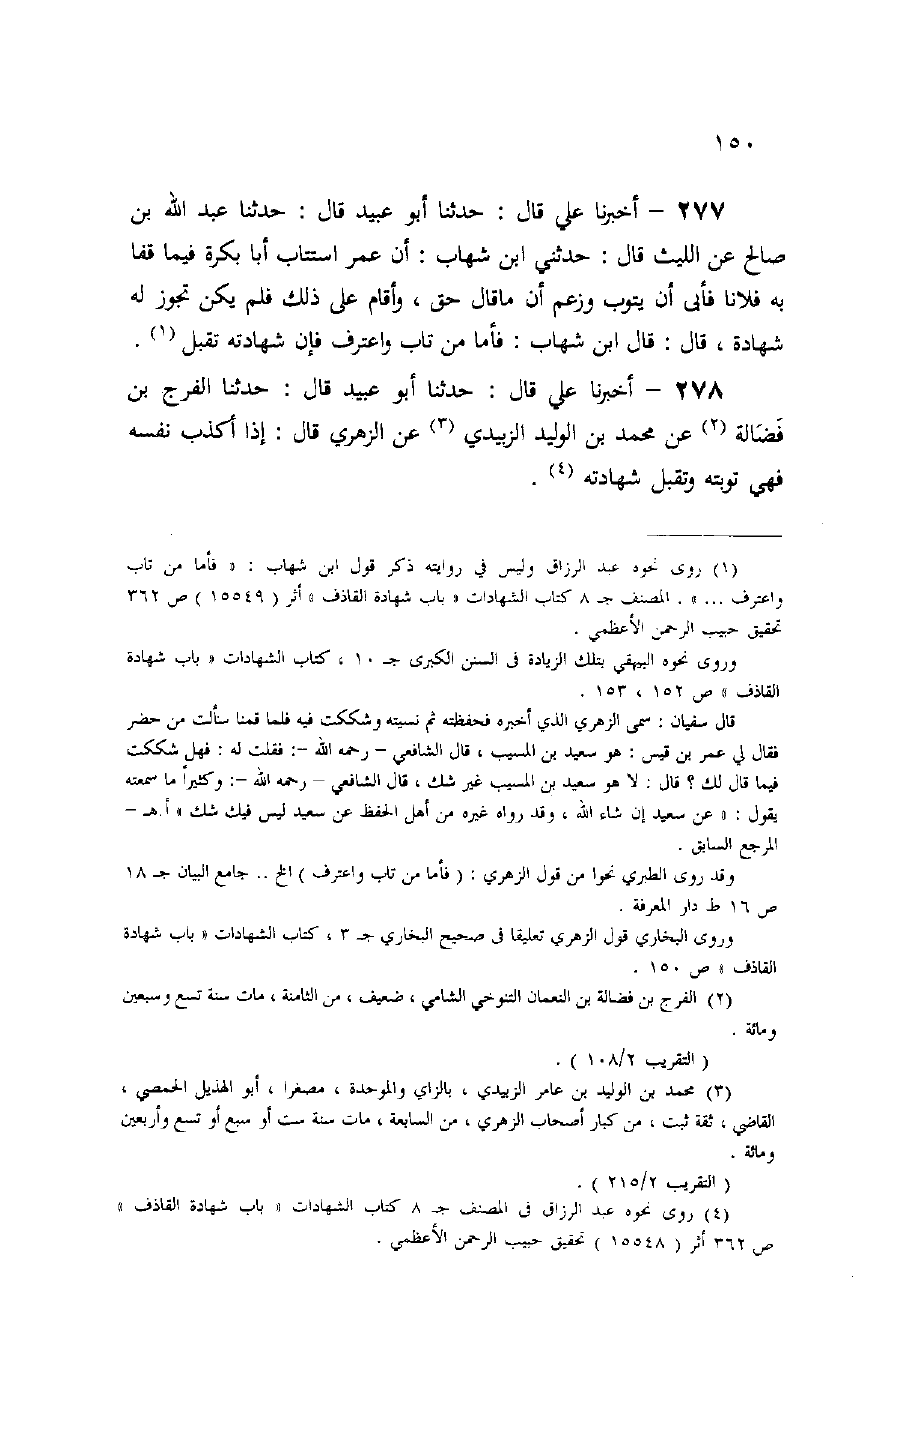 ١٥٠
٢٧٧ – أخبرنا علي قال : حدثنا أبو عبيد قال : حدثنا عبد الله بن
صالح عن الليث قال : حدثني ابن شهاب : أن عمر استتاب أبا بكرة فيما قفا
به فلانا فأبى أن يتوب وزعم أن ماقال حق ، وأقام على ذلك فلم يكن تجوز له
شهادة ، قال : قال ابن شهاب : فأما من تاب واعترف فإن شهادته تقبل (١) .
٢٧٨ – أخبرنا علي قال : حدثنا أبو عبيد قال : حدثنا الفرج بن
فَضَالة (٢) عن محمد بن الوليد الزبيدي (٣) عن الزهري قال : إذا أكذب نفسه
فهي توبته وتقبل شهادته (٤) .
(١) روى نحوه عبد الرزاق وليس في روايته ذكر قول ابن شهاب : « فأما من تاب
واعترف ... » . المصنف جـ ٨ كتاب الشهادات « باب شهادة القاذف » أثر ( ١٥٥٤٩ ) ص ٣٦٢
تحقيق حبيب الرحمن الأعظمي .
وروى نحوه البيهقي بتلك الزيادة فى السنن الكبرى جـ ١٠ ، كتاب الشهادات « باب شهادة
القاذف » ص ١٥٢ ، ١٥٣ .
قال سفيان : سمى الزهري الذي أخبره فحفظته ثم نسيته وشككت فيه فلما قمنا سألت من حضر
فقال لي عمر بن قيس : هو سعيد بن المسيب ، قال الشافعي – رحمه الله –: فقلت له : فهل شككت
فيما قال لك ؟ قال : لا هو سعيد بن المسيب غير شك ، قال الشافعي – رحمه الله –: وكثيراً ما سمعته
يقول : « عن سعيد إن شاء الله ، وقد رواه غيره من أهل الحفظ عن سعيد ليس فيك شك » أ.هـ –
المرجع السابق .
وقد روى الطبري نحوا من قول الزهري : ( فأما من تاب واعترف ) الخ .. جامع البيان جـ ١٨
ص ١٦ ط دار المعرفة .
وروى البخاري قول الزهري تعليقا فى صحيح البخاري جـ ٣ ، كتاب الشهادات « باب شهادة
القاذف » ص ١٥٠ .
(٢) الفرج بن فضالة بن النعمان التنوخي الشامي ، ضعيف ، من الثامنة ، مات سنة تسع وسبعين
ومائة .
( التقريب ١٠٨/٢ ) .
(٣) محمد بن الوليد بن عامر الزبيدي ، بالزاي والموحدة ، مصغرا ، أبو الهذيل الحمصي ،
القاضي ، ثقة ثبت ، من كبار أصحاب الزهري ، من السابعة ، مات سنة ست أو سبع أو تسع وأربعين
ومائة .
( التقريب ٢١٥/٢ ) .
(٤) روى نحوه عبد الرزاق فى المصنف جـ ٨ كتاب الشهادات « باب شهادة القاذف »
ص ٣٦٢ أثر ( ١٥٥٤٨ ) تحقيق حبيب الرحمن الأعظمي .